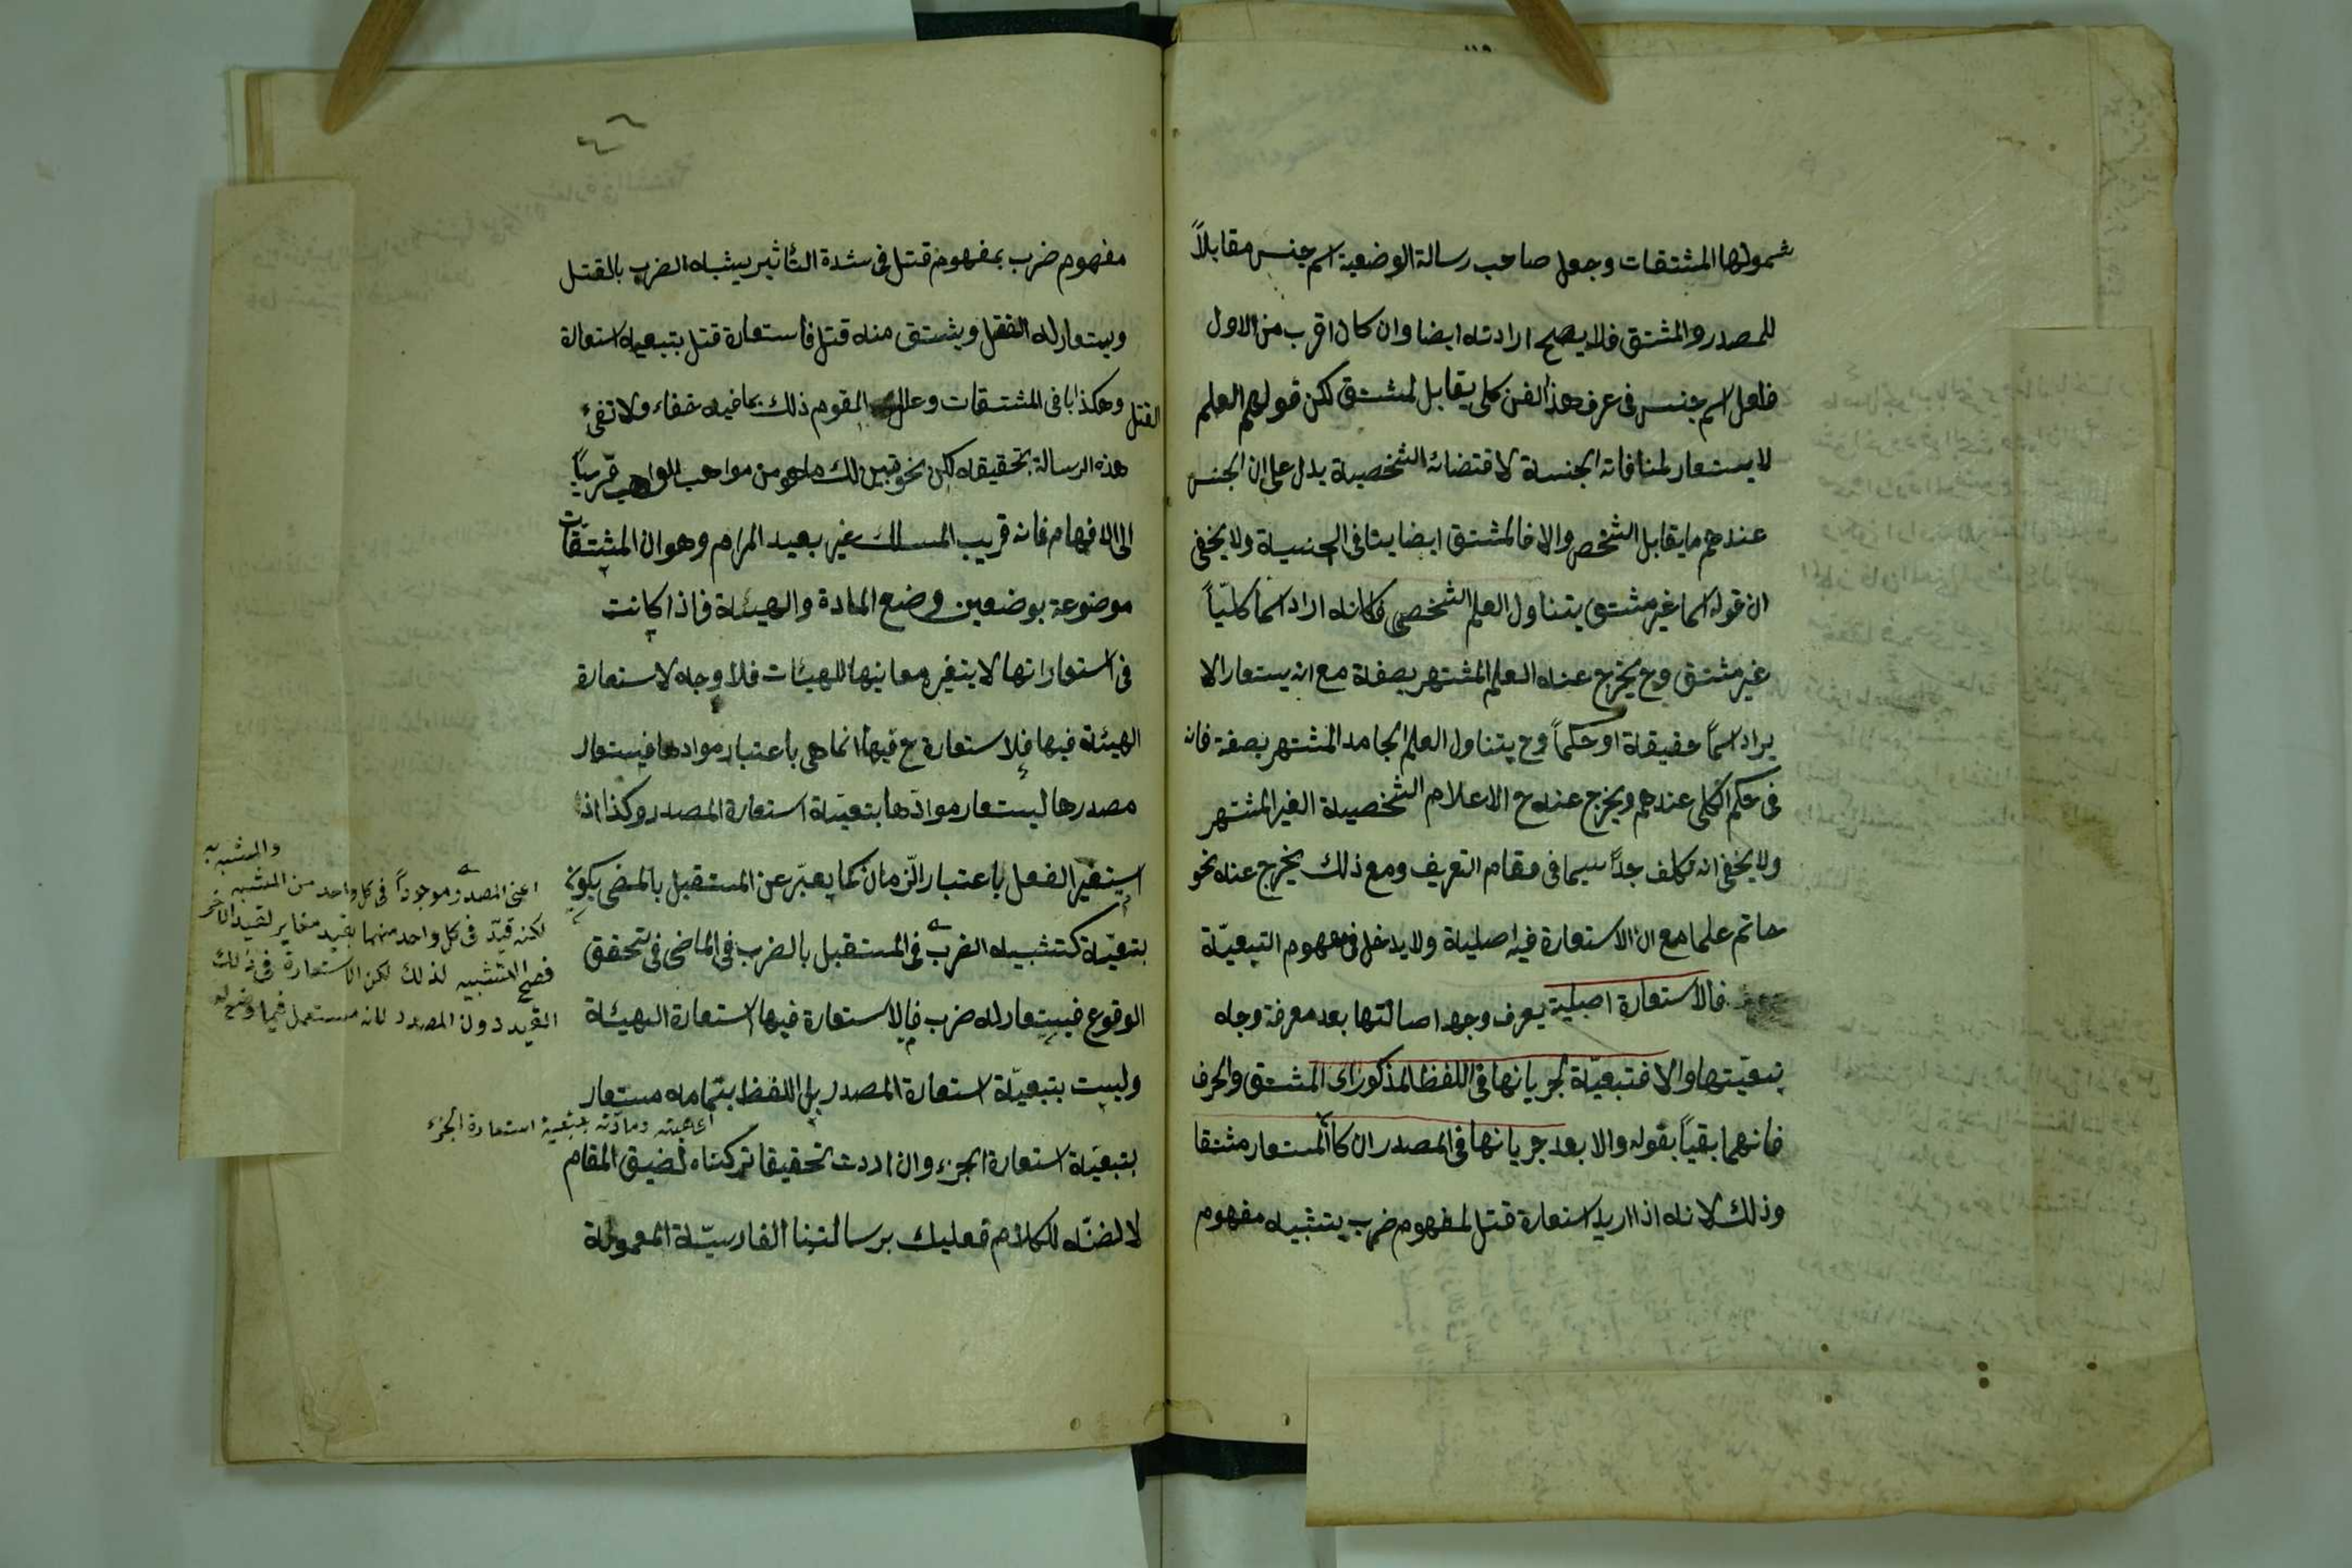 شمولها المشتقات وجعل صاحب رسالة الوضعية اسم جنس مقابلاً
للمصدر والمشتق فلا يصح ارادته ايضا وان كان اقرب من الاول
فلعل اسم جنس فى عرف هذا الفن كلى يقابل لمشتق لكن قولهم العلم
لا يستعار لمنافاته الجنسة لاقتضائه الشخصية يدل على ان الجنس
عندهم ما يقابل الشخص والا فالمشتق ايضا ينافى الجنسية ولا يخفى
ان قوله اسما غير مشتق يتناول العلم الشخصى وكانه اراد اسما كلّياً
غير مشتق وح يخرج عنه العلم المشتهر بصفة مع انه يستعار الا
يراد اسماً حقيقة او حكماً وح يتناول العلم الجامد المشتهر بصفة فانه
فى حكم الكلى عندهم ويخرج عنه ح الاعلام الشخصية الغير المشتهر
ولا يخفى انه تكلف جداً سيما فى مقام التعريف ومع ذلك يخرج عنه نحو
حاتم علما مع ان الاستعارة فيه اصلية ولا يدخل فى مفهوم التبعيّة
فالاستعارة اصلية يعرف وجه اصالتها بعد معرفة وجه
تبعيّتها والا فتبعيّة لجريانها فى اللفظ المذكور اى المشتق والحرف
فانهما بقياً بقوله والا بعد جريانها فى المصدر ان كان المستعار مشتقا
وذلك لانه اذا اريد استعارة قتل لمفهوم ضرب يتشبيه مفهوم
٤٦
مفهوم ضرب بمفهوم قتل فى شدة التأثير يشبه الضرب بالقتل
ويستعار له القتل ويشتق منه قتل فاستعارة قتل بتبعية استعارة
القتل وهكذا باقى المشتقات وعلل القوم ذلك بما فيه خفاء ولا تفى
هذه الرسالة بتحقيقه لكن نحو تبين لك ما هو من مواهب الواهب قريباً
الى الافهام فانه قريب المسلك غير بعيد المرام وهو ان المشتقات
موضوعة بوضعين وضع المادة والهيئة فاذا كانت
فى استعاراتها لا يتغير معانيها للهيئات فلا وجه لاستعارة
الهيئة فيها فلاستعارة ح فيها انما هى باعتبار موادها فيستعار
مصدرها ليستعار موادّها بتبعيّة استعارة المصدر وكذا اذا
استعير الفعل باعتبار الزّمان كما يعبّر عن المستقبل بالمضى يكون
بتبعيّة كتشبيه الضرب فى المستقبل بالضرب فى الماضى فى تحقق
الوقوع فيستعار له ضرب فالاستعارة فيها استعارة الهيئة
وليست بتبعيّة استعارة المصدر بل اللفظ بتمامه مستعار
بتبعيّة استعارة الجزء وان اردت تحقيقا تركناه لضيق المقام
لا لضنّه للكلام فعليك برسالتنا الفارسيّة المعمولة
والمشبه به
اعنى المصدر موجوداً فى كل واحد من المشبه
لكنه قيّد فى كل واحد منهما بقيد مغاير لقيد الآخر
فصح التشبيه لذلك لكن الاستعارة فى ذلك
القيد دون المصدر لانه مستعمل فيما وضع له
اى هيئته ومادّته بتبعية استعارة الجزء